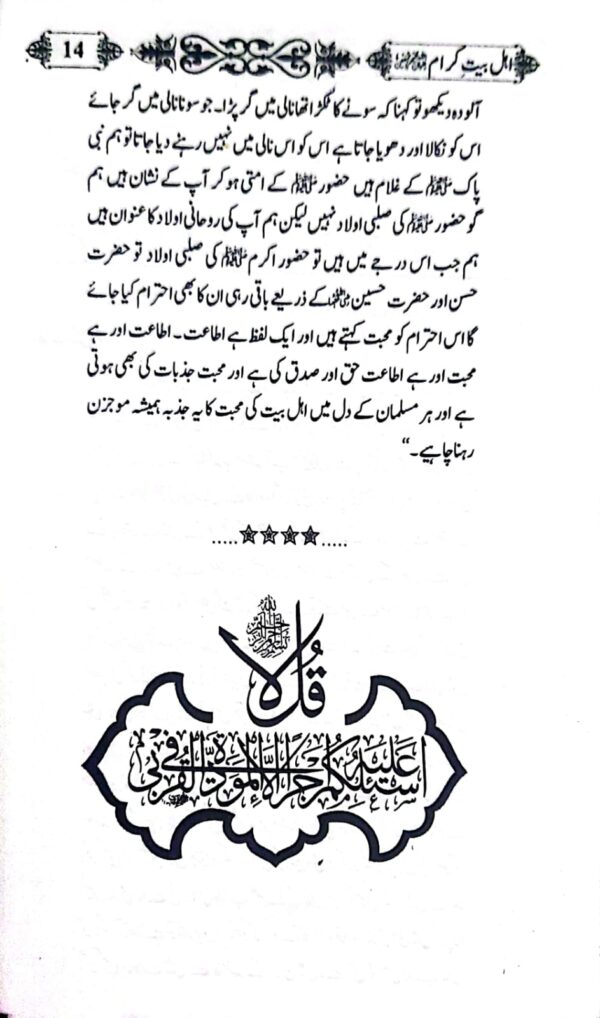 اہل بیت کرام رضی اللہ عنہم
14
آلودہ دیکھو تو کہنا کہ سونے کا ٹکڑا تھا نالی میں گر پڑا۔ جو سونا نالی میں گر جائے
اس کو نکالا اور دھویا جاتا ہے اس کو اس نالی میں نہیں رہنے دیا جاتا تو ہم نبی
پاک ﷺ کے غلام ہیں حضور ﷺ کے امتی ہو کر آپ کے نشان ہیں ہم
گو حضور ﷺ کی صلبی اولاد نہیں لیکن ہم آپ کی روحانی اولاد کا عنوان ہیں
ہم جب اس درجے میں ہیں تو حضور اکرم ﷺ کی صلبی اولاد تو حضرت
حسن اور حضرت حسین کے ذریعے باقی رہی ان کا بھی احترام کیا جائے
گا اس احترام کو محبت کہتے ہیں اور ایک لفظ ہے اطاعت۔ اطاعت اور ہے
محبت اور ہے اطاعت حق اور صدق کی ہے اور محبت جذبات کی بھی ہوتی
ہے اور ہر مسلمان کے دل میں اہل بیت کی محبت کا یہ جذبہ ہمیشہ موجزن
رہنا چاہیے۔“
بسم اللہ الرحمن الرحیم
قُل لَا
اسئلکم علیہ اجرًا اِلَّا المودۃ فی القربیٰ